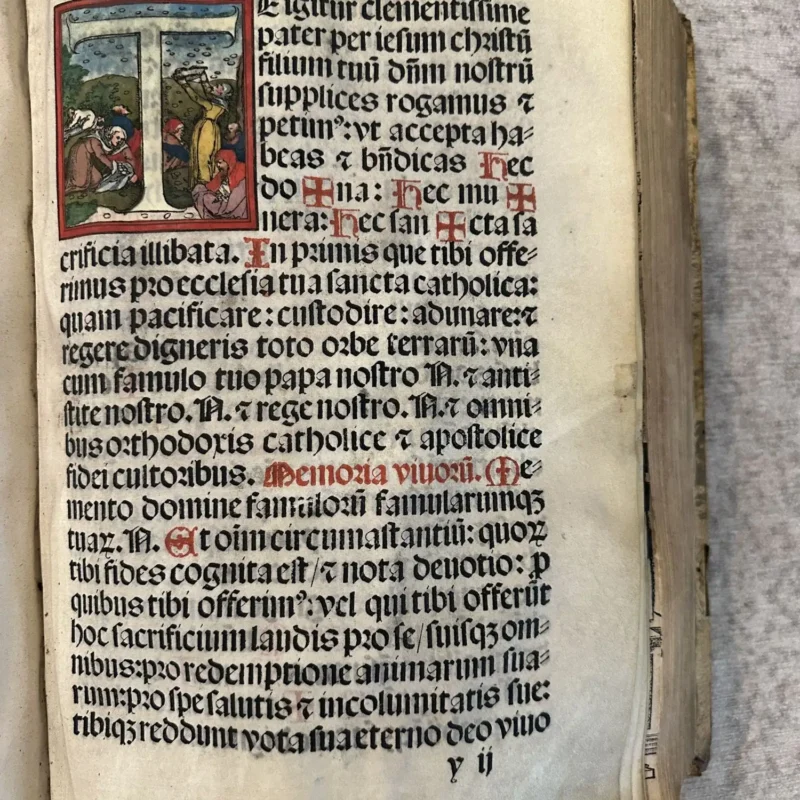 TE igitur clementissime
pater per iesum christū
filium tuū dn̄m nostrū
supplices rogamus ⁊
petimꝰ: vt accepta ha⸗
beas ⁊ bn̄dicas Hec
do ✠ na: Hec mu ✠
nera: Hec san ✠ cta sa
crificia illibata. In primis que tibi offe⸗
rimus pro ecclesia tua sancta catholica:
quam pacificare: custodire: adunare: ⁊
regere digneris toto orbe terrarū: vna
cum famulo tuo papa nostro N. ⁊ anti⸗
stite nostro. N. ⁊ rege nostro. N. ⁊ omni⸗
bus orthodoxis catholice ⁊ apostolice
fidei cultoribus. Memoria viuorū. Me⸗
mento domine famulorū famularumqꝫ
tuaꝝ. N. Et oīm circumastantiū: quoꝝ
tibi fides cognita est/ ⁊ nota deuotio: ꝓ
quibus tibi offerimꝰ: vel qui tibi offerūt
hoc sacrificium laudis pro se/ suisqꝫ om⸗
nibus: pro redemptione animarum sua⸗
rum: pro spe salutis ⁊ incolumitatis sue:
tibiqꝫ reddunt vota sua eterno deo viuo
y ij